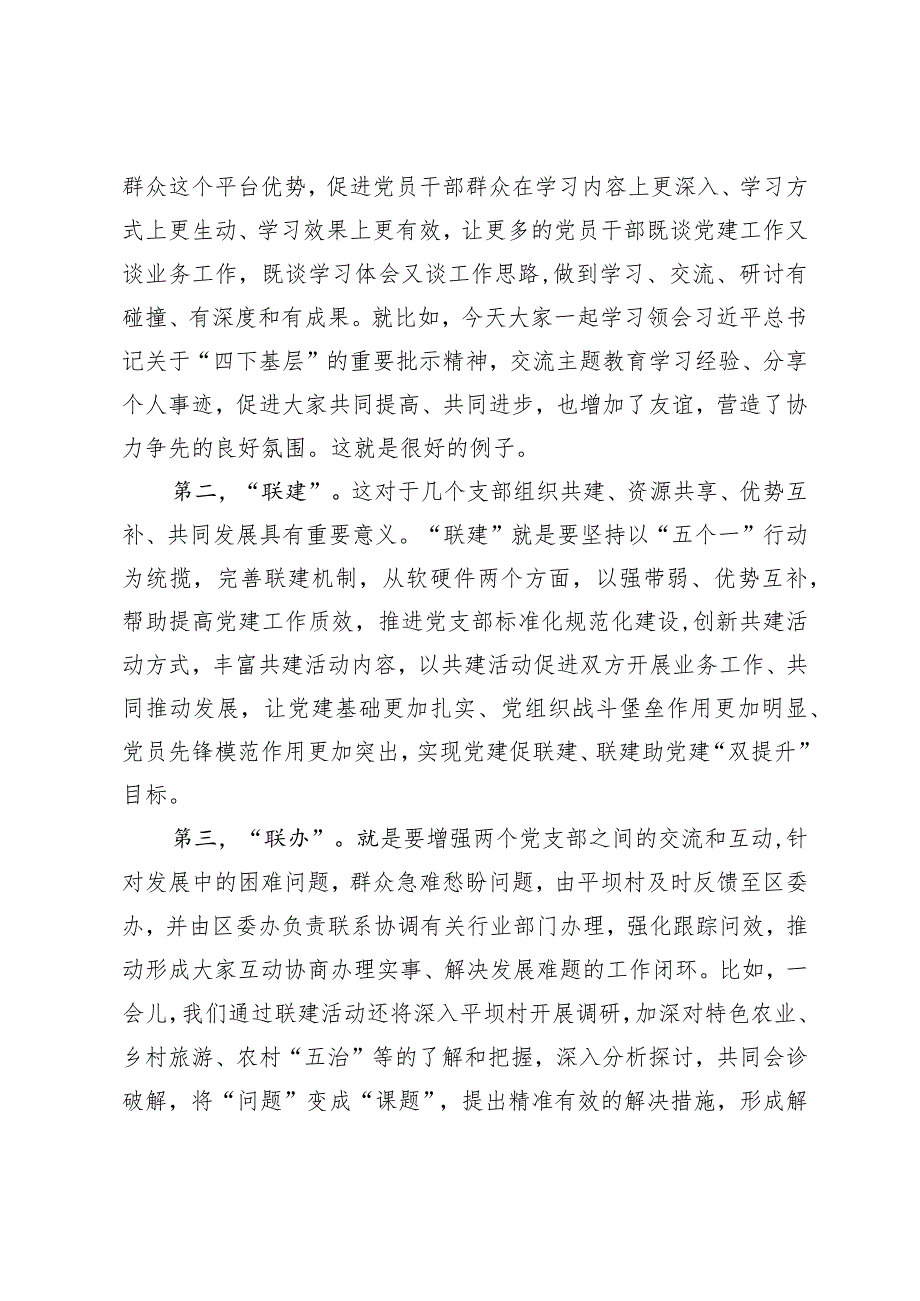 群众这个平台优势，促进党员干部群众在学习内容上更深入、学习方
式上更生动、学习效果上更有效，让更多的党员干部既谈党建工作又
谈业务工作，既谈学习体会又谈工作思路,做到学习、交流、研讨有
碰撞、有深度和有成果。就比如，今天大家一起学习领会习近平总书
记关于“四下基层”的重要批示精神，交流主题教育学习经验、分享
个人事迹，促进大家共同提高、共同进步，也增加了友谊，营造了协
力争先的良好氛围。这就是很好的例子。
第二，“联建”。这对于几个支部组织共建、资源共享、优势互
补、共同发展具有重要意义。“联建”就是要坚持以“五个一”行动
为统揽，完善联建机制，从软硬件两个方面，以强带弱、优势互补，
帮助提高党建工作质效，推进党支部标准化规范化建设,创新共建活
动方式，丰富共建活动内容，以共建活动促进双方开展业务工作、共
同推动发展，让党建基础更加扎实、党组织战斗堡垒作用更加明显、
党员先锋模范作用更加突出，实现党建促联建、联建助党建“双提升”
目标。
第三，“联办”。就是要增强两个党支部之间的交流和互动,针
对发展中的困难问题，群众急难愁盼问题，由平坝村及时反馈至区委
办，并由区委办负责联系协调有关行业部门办理，强化跟踪问效，推
动形成大家互动协商办理实事、解决发展难题的工作闭环。比如，一
会儿,我们通过联建活动还将深入平坝村开展调研,加深对特色农业、
乡村旅游、农村“五治”等的了解和把握，深入分析探讨，共同会诊
破解，将“问题”变成“课题”，提出精准有效的解决措施，形成解